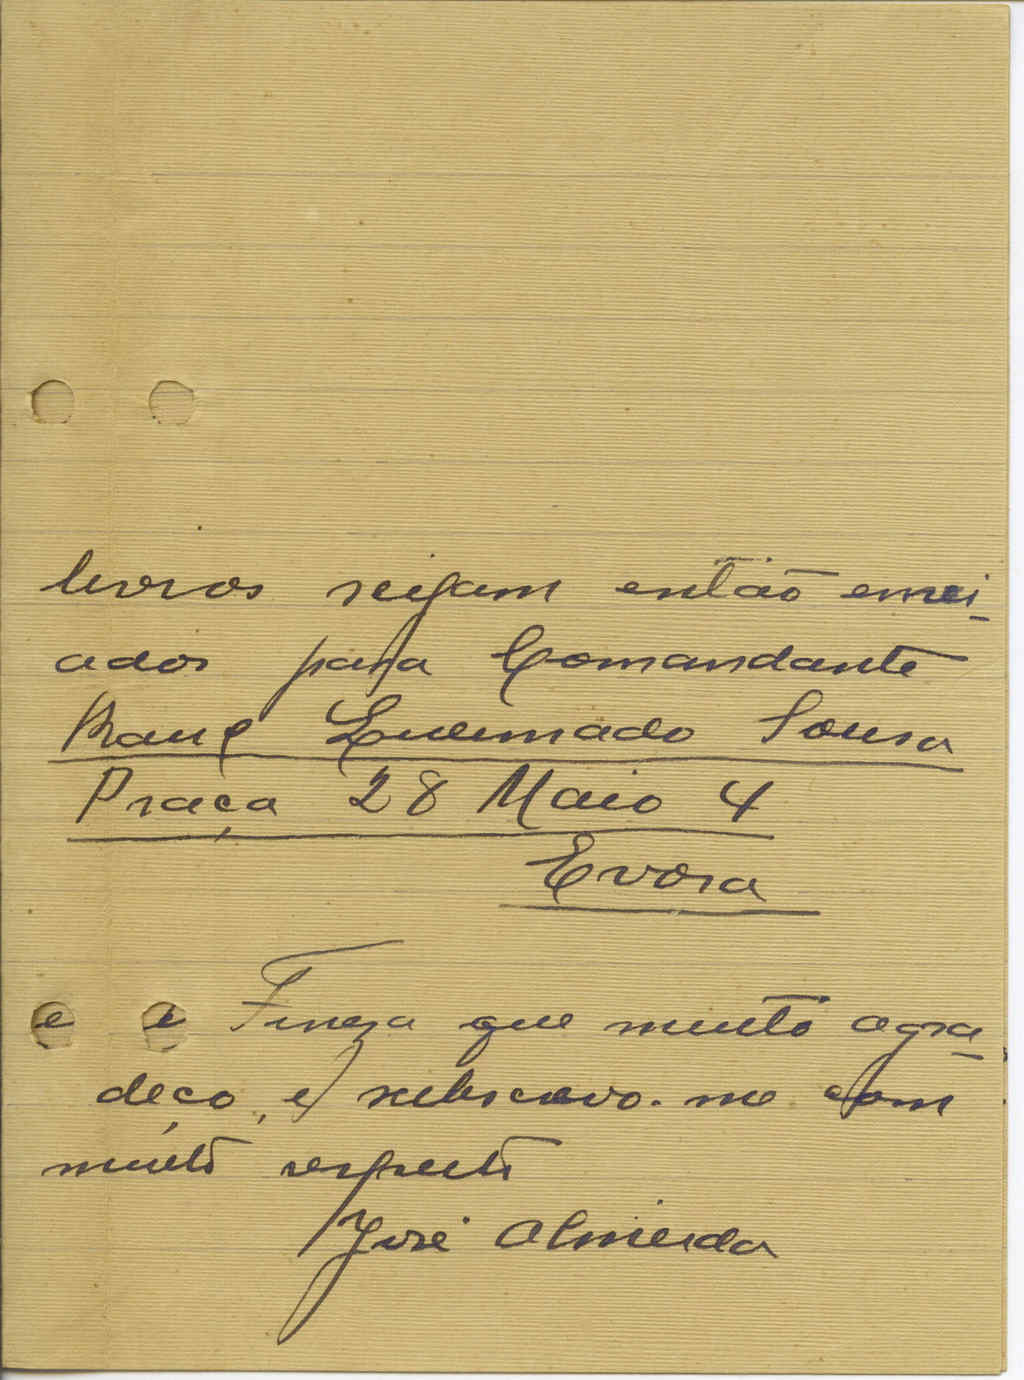 livros sejam então envi-
ados para Comandante
Queimado Sousa
Praça 28 Maio 4
Evora
e a Fineza que muito agra-
deço, e subscrevo-me com
muito respeito
José Almeida